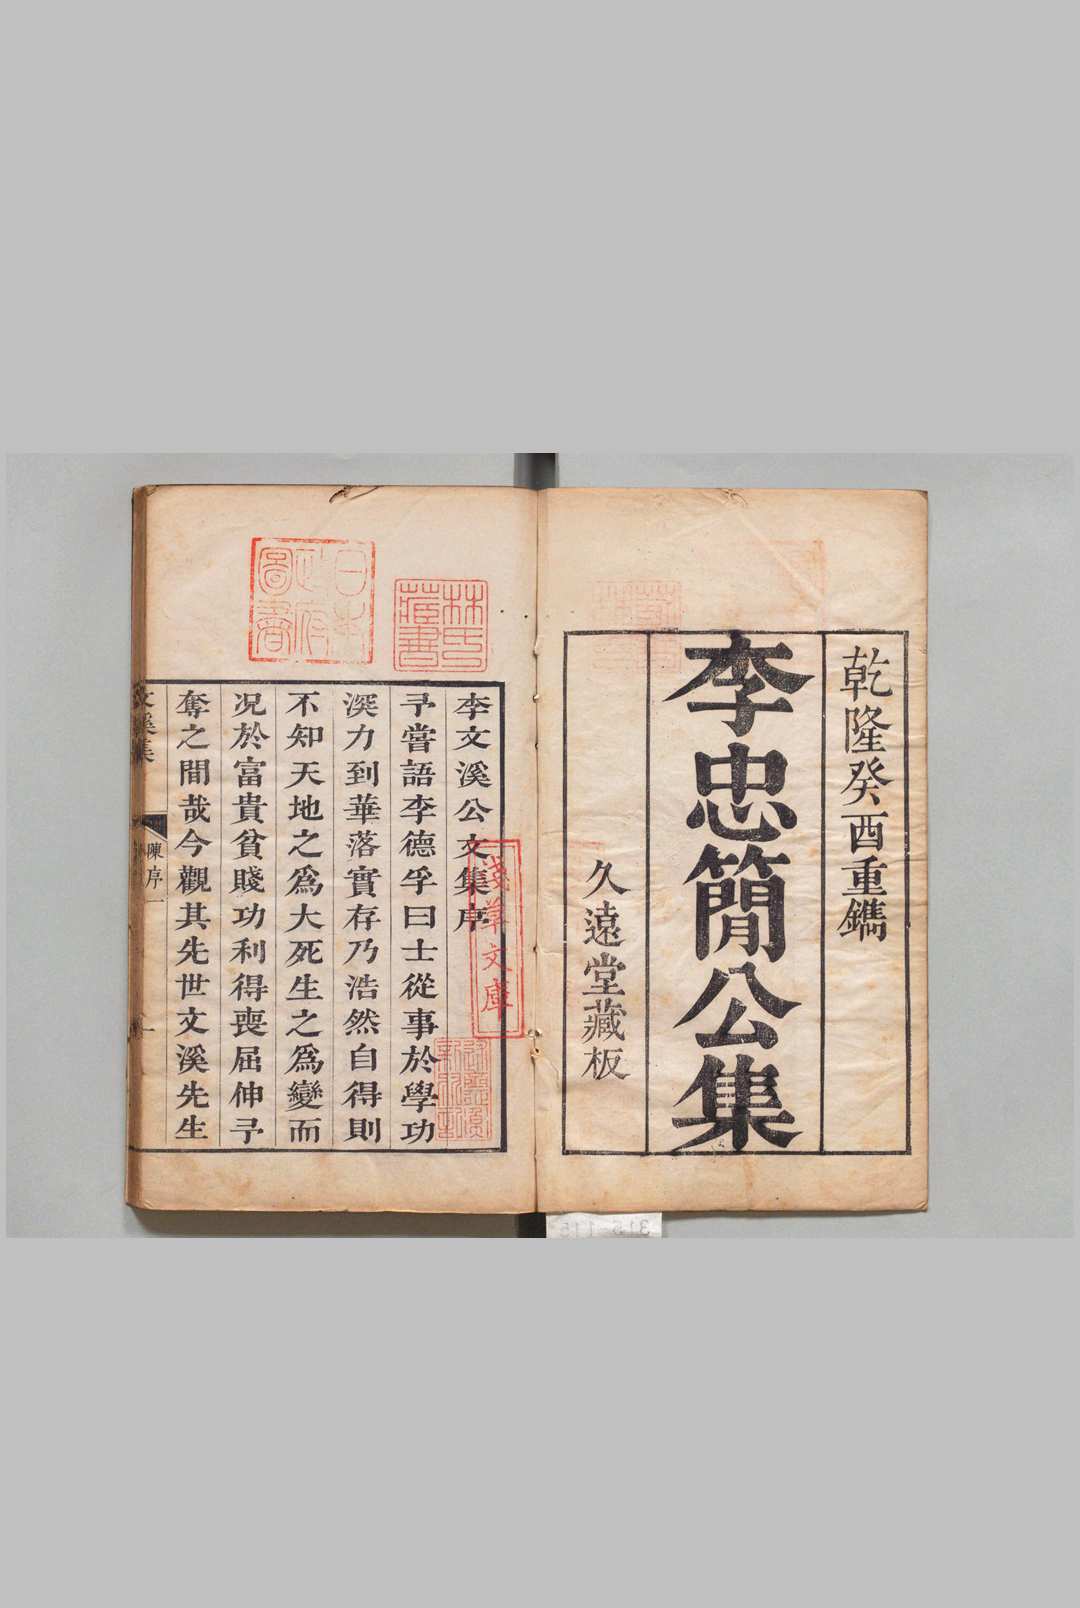 乾隆癸酉重鐫
李忠簡公集
久遠堂藏板
李文溪公文集序
予嘗語李德孚曰士從事於學功
深力到華落實存乃浩然自得則
不知天地之爲大死生之爲變而
況於富貴貧賤功利得喪屈伸予
奪之間哉今觀其先世文溪先生
文溪集
陳序
一
日本政府圖書
林氏藏書
淺草文庫